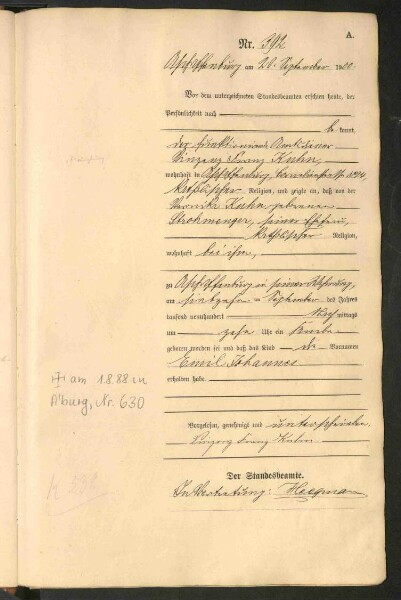 A.
Nr. 392
Aschaffenburg am 20. September 1900.
Vor dem unterzeichneten Standesbeamten erschien heute, der
Persönlichkeit nach
be kannt,
der funktionierende
Vinzenz Franz Kuhn,
wohnhaft in Aschaffenburg,
katholischer Religion, und zeigte an, daß von der
Veronika Kuhn, geborenen
Strohmenger, seiner Ehefrau,
katholischer Religion,
wohnhaft bei ihm,
zu Aschaffenburg in seiner Wohnung,
am siebzehnten September des Jahres
tausend neunhundert Nachmittags
um zehn Uhr ein Knabe
geboren worden sei und daß das Kind die Vornamen
Emil Johannes
erhalten habe.
Vorgelesen, genehmigt und unterschrieben
Vinzenz Franz Kuhn
Der Standesbeamte.
In Vertretung:
am 1.8.88 in
A'burg, Nr. 630